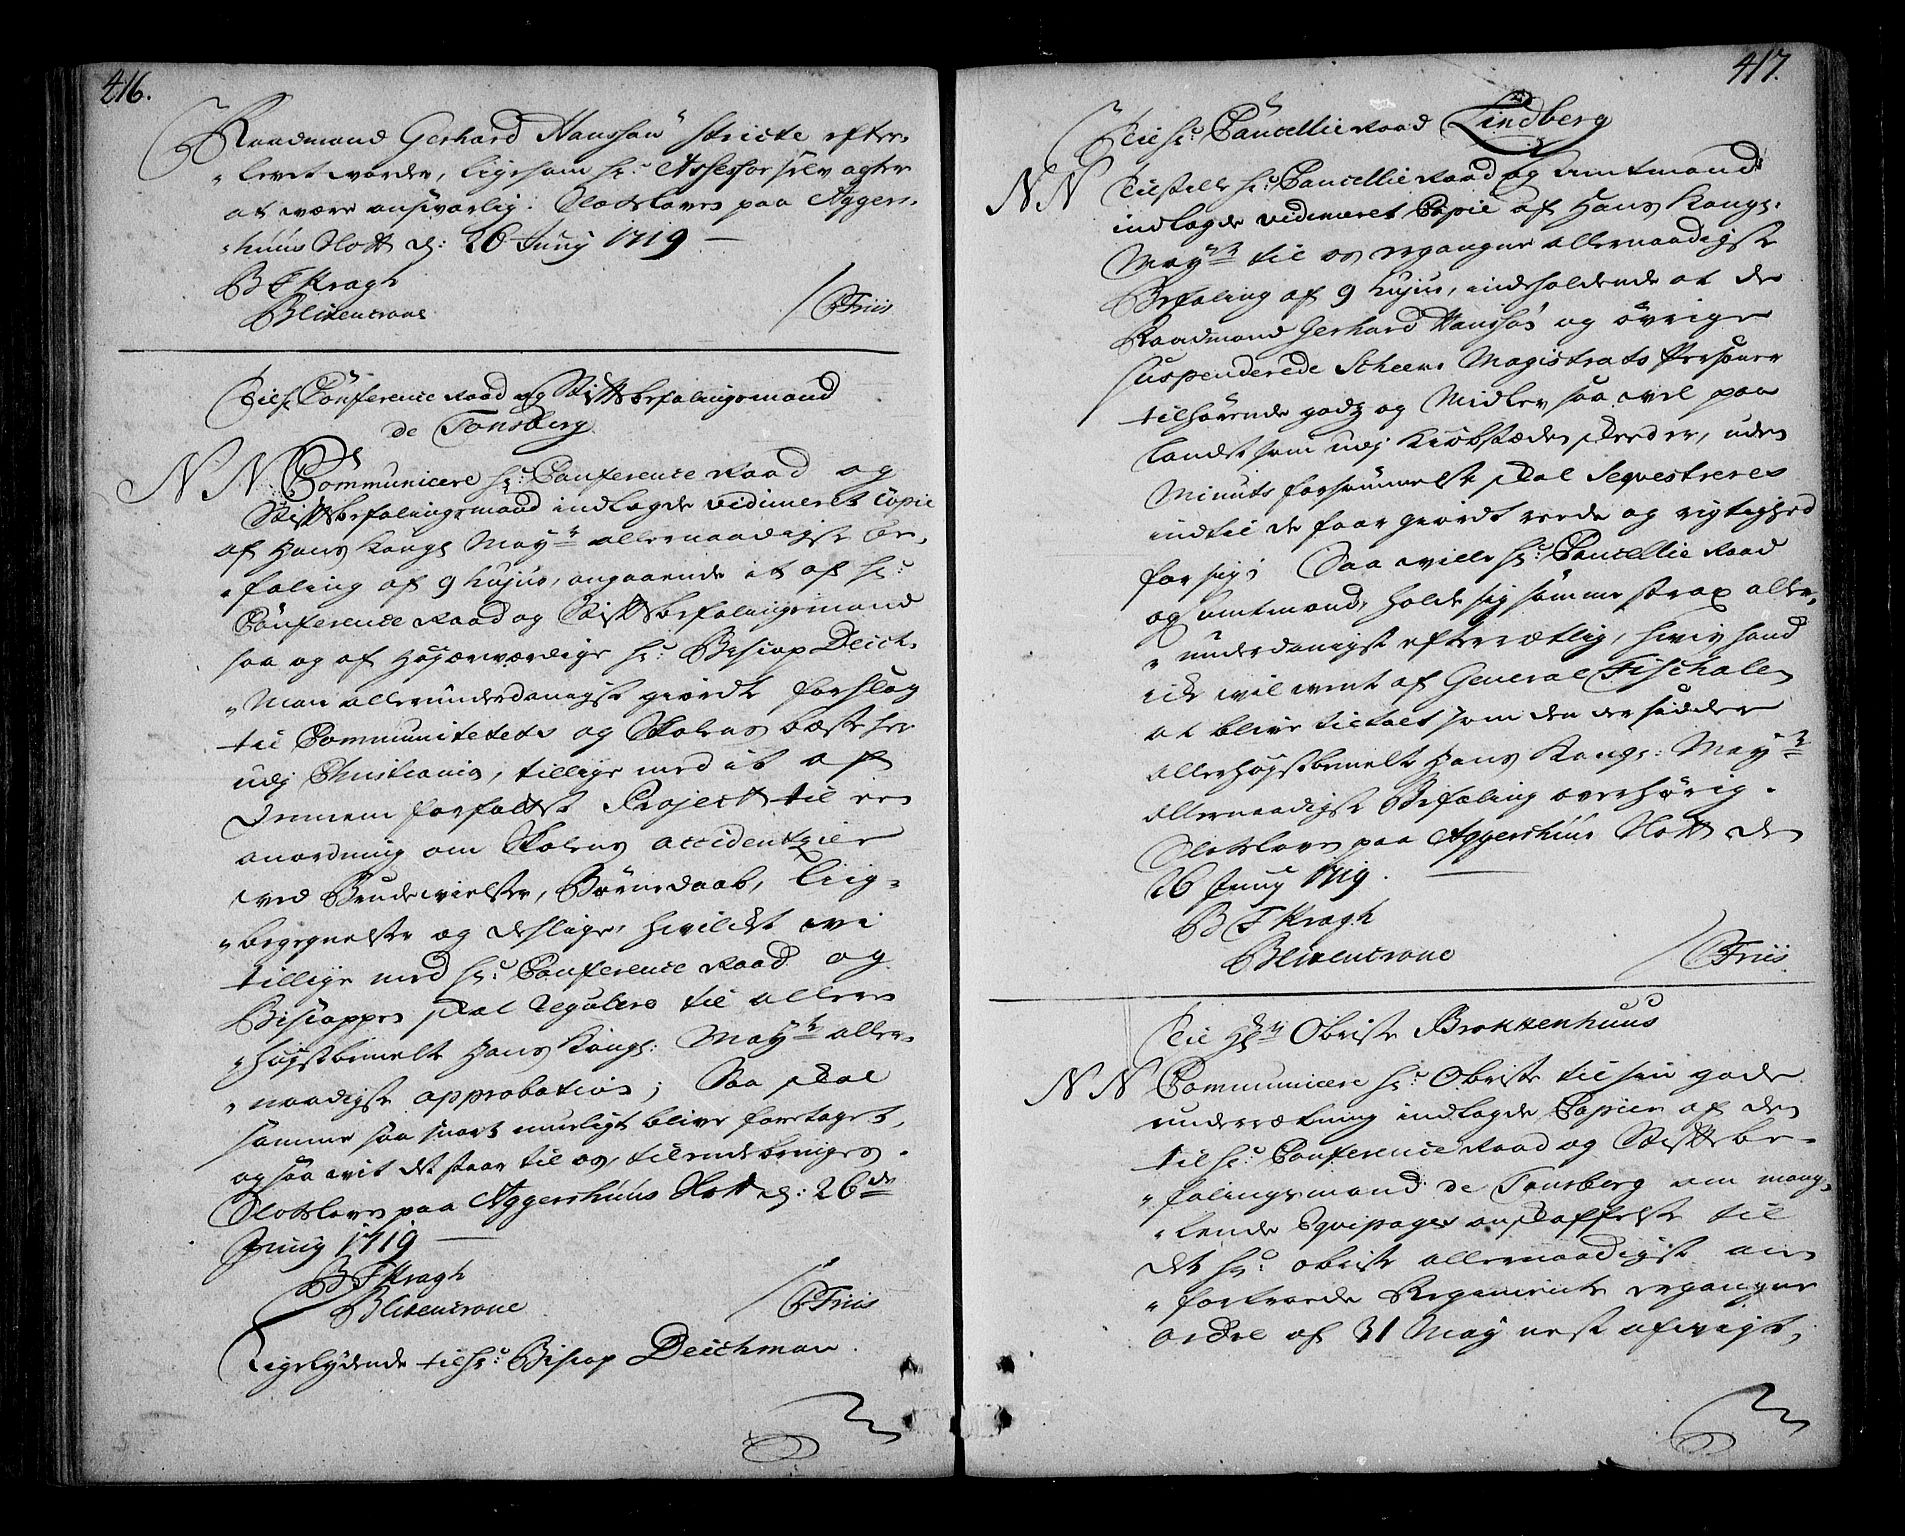 416.
Raadmand Gerhard Hanssøn stricte efter-
"levet vorder, ligesom hr: Assessor selv agter
at være ansvarlig. Slotsloven paa Aggers-
"huus Slott d: 26 Junij 1719
B F Kragh
Blixencrone
/ C Friis
Til hr Conference Raad og Stiftsbefalingsmand
de Tonsberg
N N Communicere hr: Conference Raad og
Stiftsbefalingsmand indlagde vidimeret Copie
af Hans Kongl May:ts allernaadigste Be-
"faling af 9 hujus, angaaende it af hr:
Conference Raad og Stiftsbefalingsmand
saa og af Højærværdige hr: Bisiop Deich-
"Man allerunderdanigst giordt forslag
til Communitetets og Skolens bæste her
udj Christiania, tillige med it af
dennem forfattet Project til en
anordning om Skolens accidentzier
ved Brudevielser, Børnedaab, Liig-
"begegnelser og deslige, hvilcket vi
tillige med hr: Conference Raad og
Bisioppen skal regulere til aller-
"højstbemelte Hans Kongl: May:ts aller-
"naadigste approbation; Saa skal
samme saa snart mueligt blive foretaget,
og saa vit det staar til os, tilendebringes.
Slotsloven paa Aggershuus Slott d: 26de
Junij 1719
B F Kragh
Blixencrone
/ C Friis
Ligelydende til hr: Bisiop Deichman.
417.
Til hr: Cancellie Raad Lindberg
N N Tilstille hr: Cancellie Raad og Amtmand
indlagde vidimeret Copie af Hans Kongl.
May:ts til os ergangne allernaadigste
Befaling af 9 hujus, indeholdende at de
Raadmand Gerhard Hanssøn og øvrige
suspenderede Scheens Magistrats Personer
tilhørende godz og Midler saa vel paa
Landet som udj Kiøbstæden skeeder, uden
Minuts forsømmelse skal Seqvestreres
indtil de faar giordt reede og rigtighed
for sig; Saa ville hr: Cancellie Raad
og Amtmand, holde sig samme strax aller-
"underdanigst efterrætlig, hvis hand
icke vil vente af General Fischalen
at blive tiltalt som den der sidder
allerhøgstbemelte Hans Kongl: May:ts
allernaadigste Befaling overhørig.
Slotsloven paa Aggershuus Slott den
26 Junij 1719.
B F Kragh
Blixencrone
/ C Friis
Til Hr: Obriste Brokkenhuus
N N Communicere hr: Obriste til sin gode
underrætning indlagde Copier af den
til hr: Conference Raad og Stiftsbe-
"falingsmand de Tonsberg om mang-
"lende Eqvipages anskaffelse til
det hr: Obriste allernaadigst an-
"fortroede Regimente ergangne
ordre af 31 May nest afvigt,